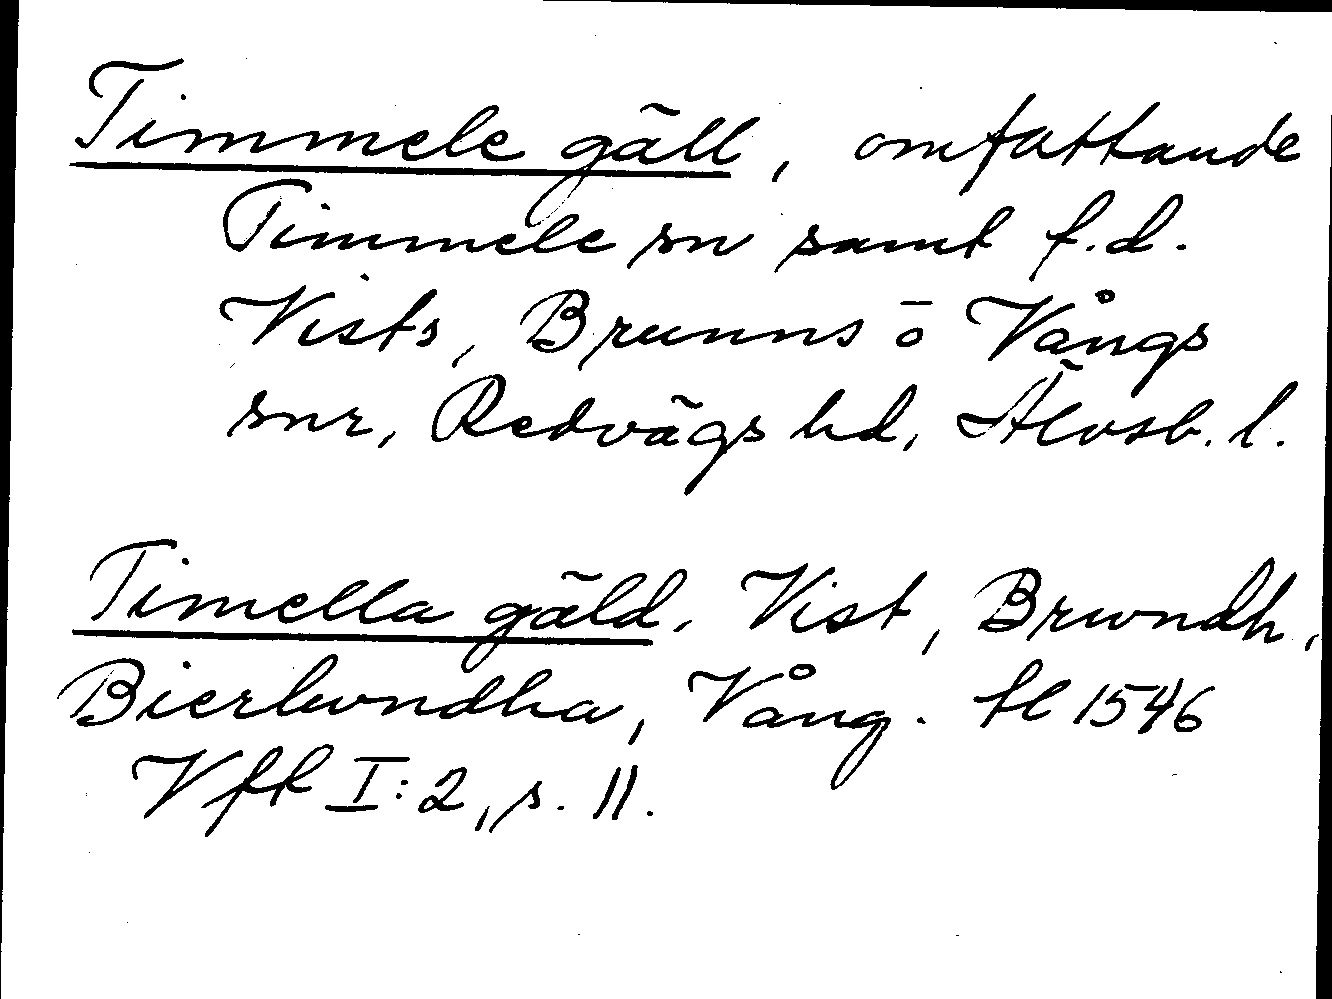 Timmele gäll, omfattande
Timmele sn samt f.d.
Vists, Brunns o Vångs
snr, Redvägs hd, Älvsb. l.
Timella gäld. Vist, Brwndh,
Bierlwndha, Vång. tl 1546
Vfft I:2, s. 11.